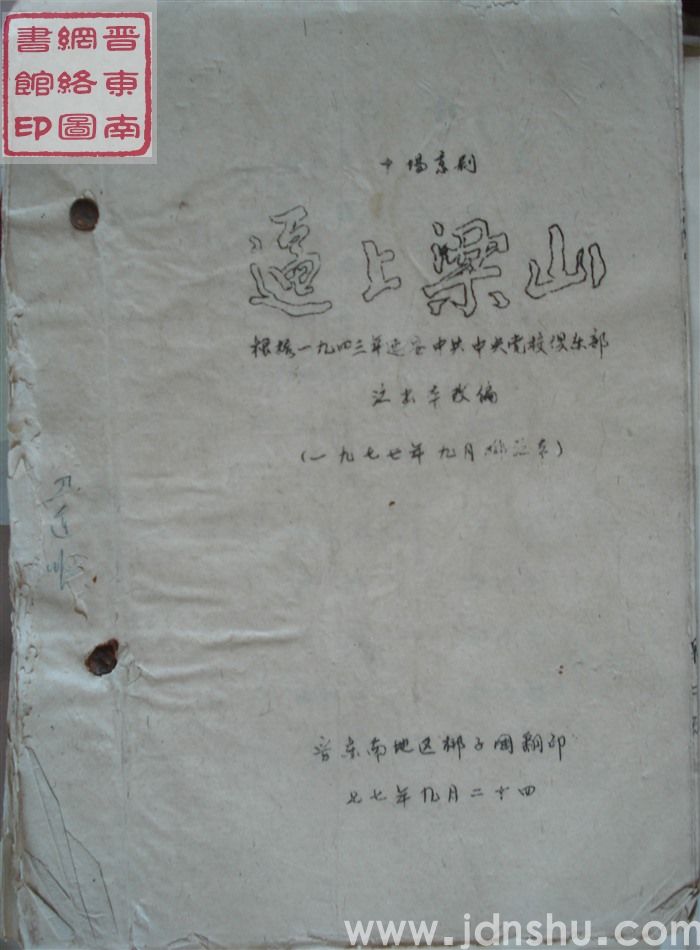 晋東南
網絡圖
書館印
十场京剧
逼上梁山
根据一九四三年延安中共中央党校俱乐部
演出本改编
(一九七七年九月排演本)
晋东南地区梆子团翻印
七七年九月二十四
www.jdnshu.com